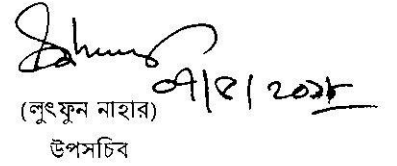 ০৭/৪/২০১৮
(লুৎফুন নাহার)
উপসচিব